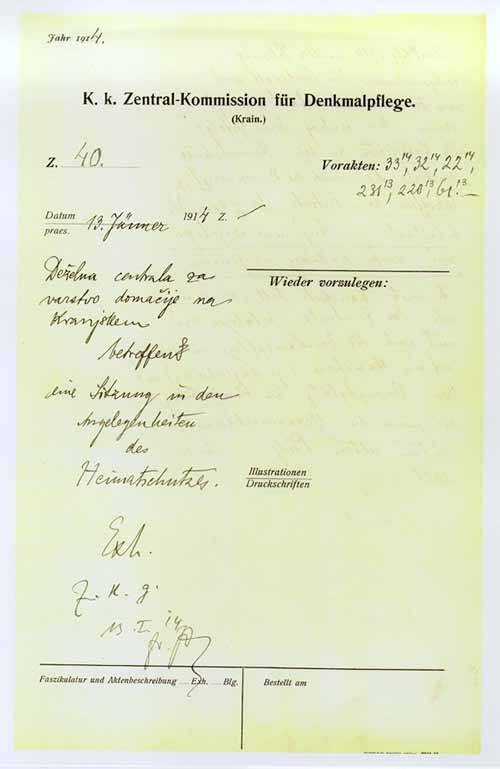 Jahr 1914.
K. k. Zentral-Kommission für Denkmalpflege.
(Krain.)
Z. 40.
Vorakten: 33¹⁴, 32¹⁴, 22¹⁴,
231¹³, 220¹³, 61¹³.
Datum
praes. 13. Jänner 1914 Z.
Deželna centrala za
varstvo domačije na
Kranjskem
betreffend
eine Sitzung in den
Angelegenheiten
des
Heimatschutzes.
Wieder vorzulegen:
Illustrationen
Druckschriften
Exh.
Z. K. g.
13. I. 14
Faszikulatur und Aktenbeschreibung .... Exh. .... Blg.
Bestellt am